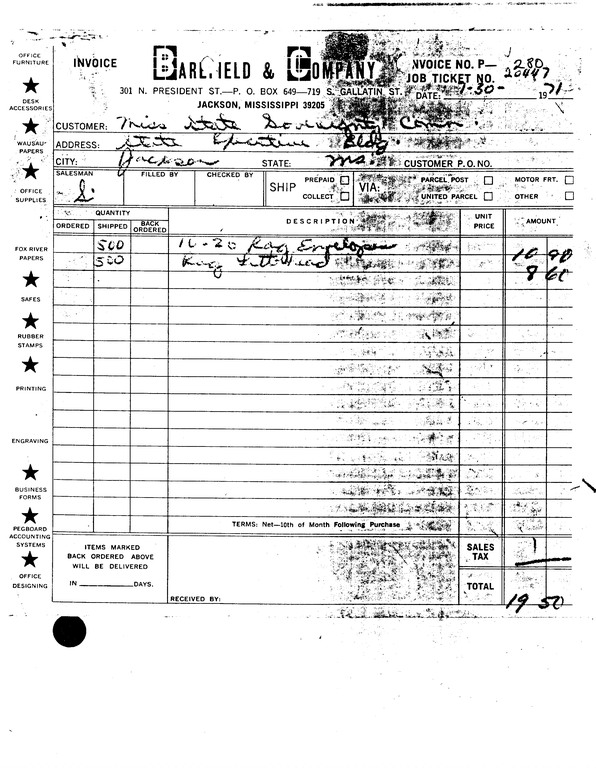 INVOICE
BAREFIELD & COMPANY
NVOICE NO. P— 280
JOB TICKET NO. 20447
301 N. PRESIDENT ST.—P. O. BOX 649—719 S. GALLATIN ST.
DATE: 7-30- 1971
JACKSON, MISSISSIPPI 39205
CUSTOMER: Miss State Sovereignty Comm
ADDRESS: State Executive Bldg
CITY: Jackson STATE: Ms. CUSTOMER P.O. NO.
SALESMAN FILLED BY CHECKED BY
S.
SHIP PREPAID COLLECT VIA: PARCEL POST UNITED PARCEL MOTOR FRT. OTHER
QUANTITY
ORDERED SHIPPED BACK ORDERED DESCRIPTION UNIT PRICE AMOUNT
500 16-20 Rag Envelopes 10 90
500 Rag Letthead 8 60
TERMS: Net—10th of Month Following Purchase
ITEMS MARKED
BACK ORDERED ABOVE
WILL BE DELIVERED
IN DAYS.
RECEIVED BY:
SALES TAX
TOTAL 19 50
OFFICE FURNITURE
DESK ACCESSORIES
WAUSAU PAPERS
OFFICE SUPPLIES
FOX RIVER PAPERS
SAFES
RUBBER STAMPS
PRINTING
ENGRAVING
BUSINESS FORMS
PEGBOARD ACCOUNTING SYSTEMS
OFFICE DESIGNING